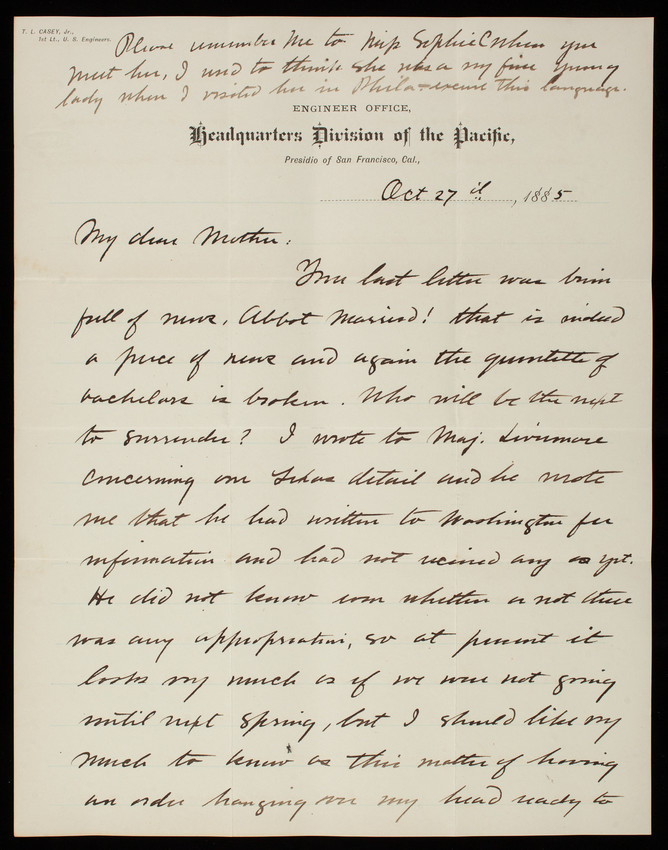 T. L. CASEY, Jr.,
1st Lt., U. S. Engineers.
Please remember me to Miss Sophie C when you
meet her, I used to think she was a very fine young
lady when I visited her in Phila excuse this language.
ENGINEER OFFICE,
Headquarters Division of the Pacific,
Presidio of San Francisco, Cal.,
Oct 27th, 1885
My dear Mother:
Your last letter was brim
full of news. Abbot Married! that is indeed
a piece of news and again the quintette of
bachelors is broken. Who will be the next
to surrender? I wrote to Maj. Livermore
concerning our Texas detail and he wrote
me that he had written to Washington for
information and had not received any as yet.
He did not know even whether or not there
was any appropriation, so at present it
looks very much as if we were not going
until next spring, but I should like very
much to know as this matter of having
an order hanging over my head ready to